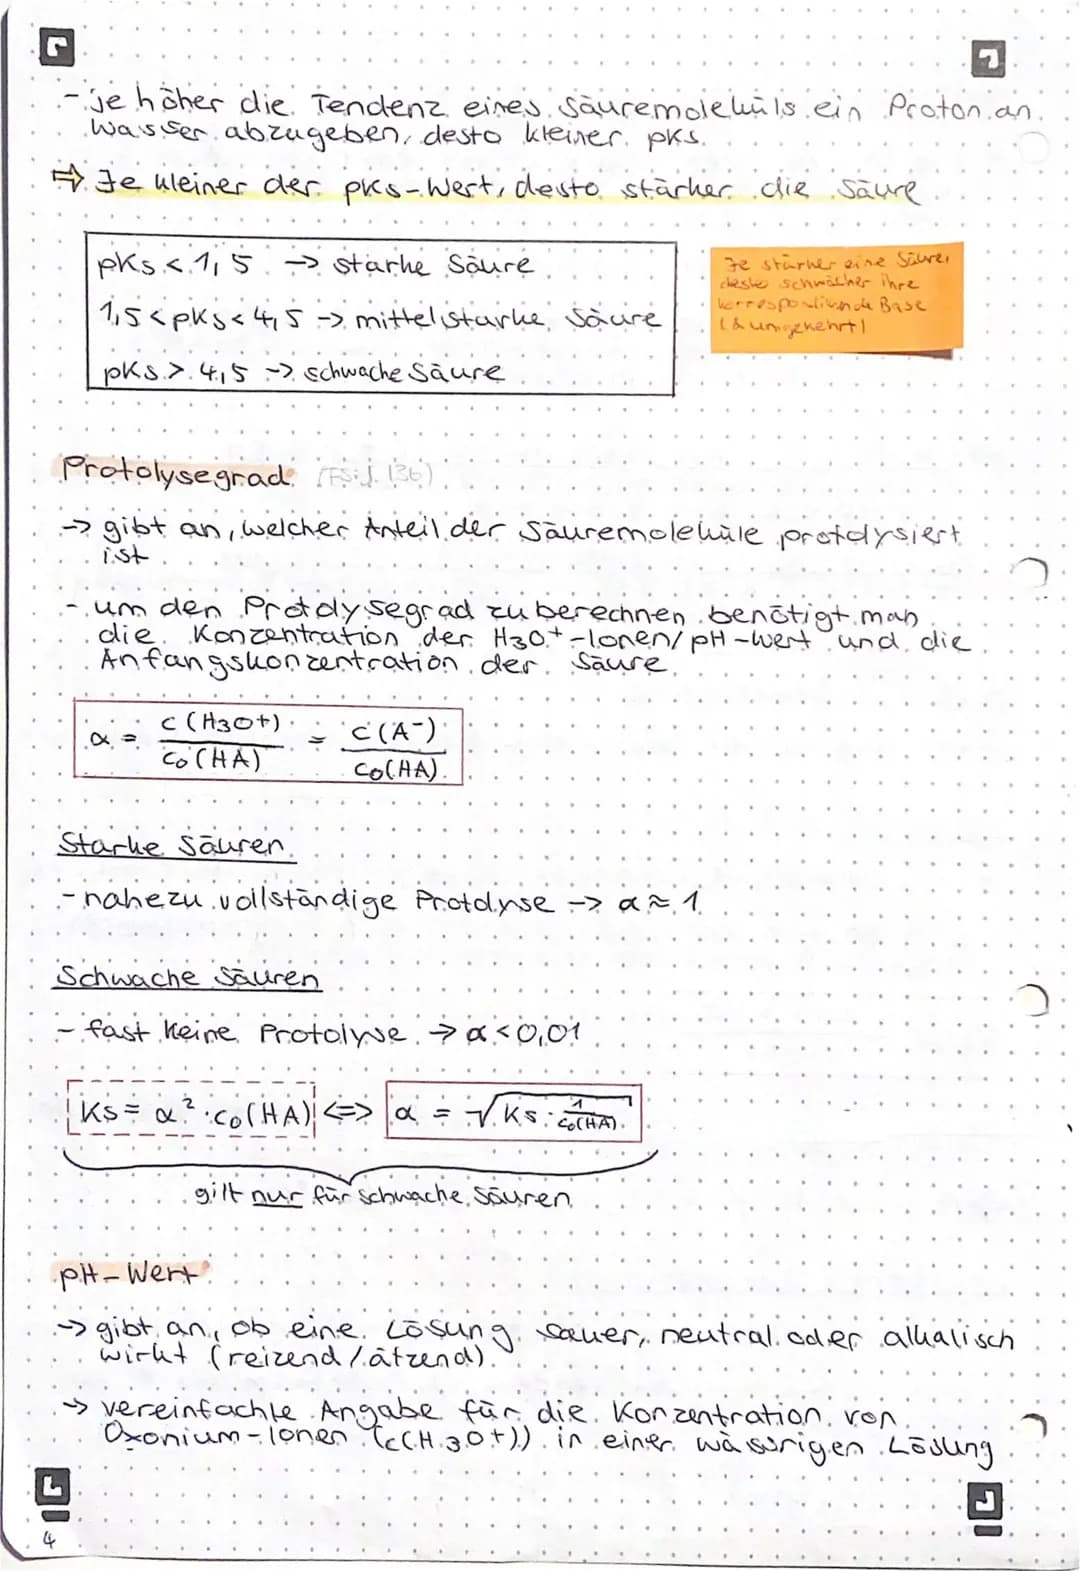 - je höher die Tendenz eines Säuremoleküls ein Proton an
Wasser abzugeben, desto kleiner pKs.
⇒ Je kleiner der pKs-Wert, desto stärker die Säure
pKs < 1,5 → starke Säure
1,5 < pKs < 4,5 → mittelstarke Säure
pKs > 4,5 → schwache Säure
Je stärker eine Säure,
desto schwächer ihre
korrespondierende Base
(& umgekehrt)
Protolysegrad (FS: S. 136)
→ gibt an, welcher Anteil der Säuremoleküle protolysiert
ist
- um den Protolysegrad zu berechnen benötigt man
die Konzentration der H3O+-Ionen/pH-Wert und die
Anfangskonzentration der Säure
α = c(H3O+) / c0(HA) = c(A-) / c0(HA)
Starke Säuren
- nahezu vollständige Protolyse → α ≈ 1
Schwache Säuren
- fast keine Protolyse → α < 0,01
Ks = α² · c0(HA) <=> α = √(Ks · 1/c0(HA))
gilt nur für schwache Säuren
pH-Wert
→ gibt an, ob eine Lösung sauer, neutral oder alkalisch
wirkt (reizend/ätzend)
→ vereinfachte Angabe für die Konzentration von
Oxonium-Ionen (c(H3O+)) in einer wässrigen Lösung
4